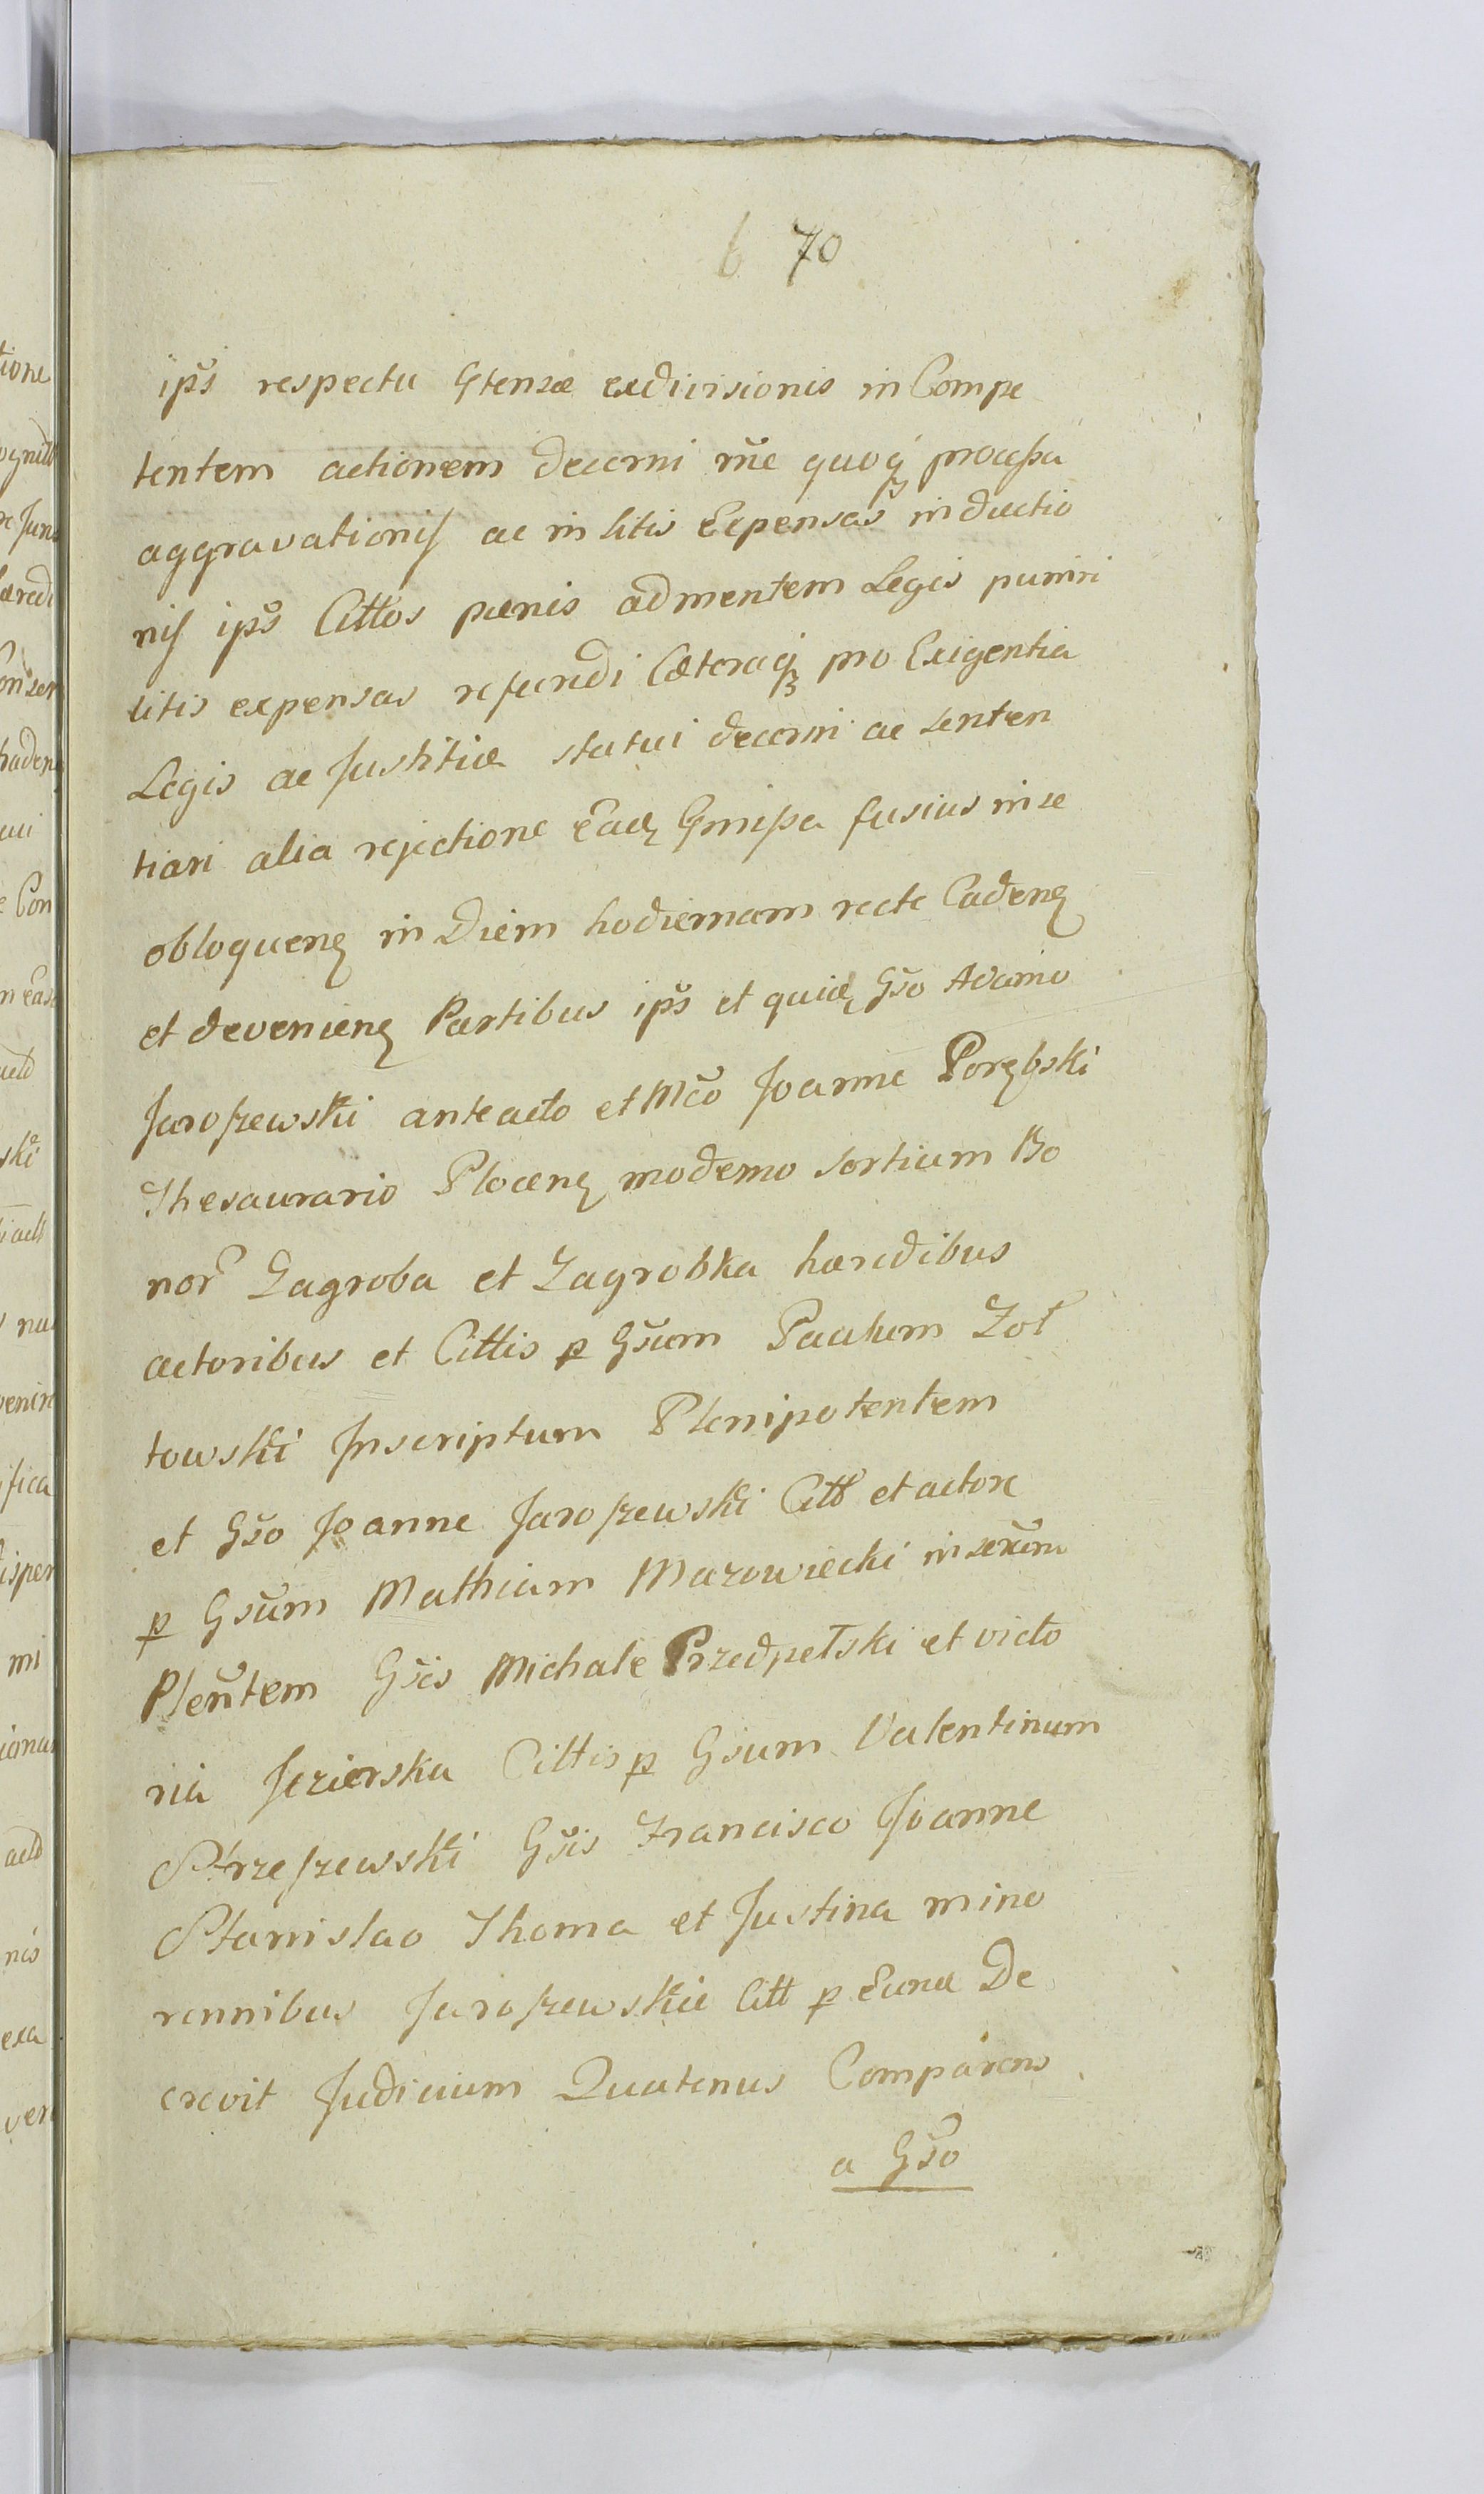 6 70
ips̃ respectu Gtensæ exdivisionis in Compe
tentem actionem decerni rñe quoqꝫ processu
aggravationis ac in litis Expensas inductio
nis ips̃ Cittos pænis ad mentem Legis puniri
litis expensas refundi Cæteraqꝫ pro Exigentia
Legis ac Justitiæ statui decerni ac senten
tiari alia rejectione Gmissa fusius in se
obloquenꝫ in Diem hodiernam recte Cadenꝫ
et devenienꝫ Partibus ips̃ et quidꝫ Gs̃o Adamo
Jaroszewski ante acto et Mc̃o Joanne Porębski
Thesaurario Plocenꝫ moderno sortium Bo
nor̃ Zagroba et Zagrobka hæredibus
actoribus et Cittis ꝑ Gs̃um Paulum Żoł
towski Inscriptum Plenipotentem
et Gs̃o Joanne Jaroszewski Citt et actore
ꝑ Gsũm Mathiam Mazowiecki inserũm
Pleñtem Gsĩs Michale Przedpełski et victo
ria Jezierska Cittis ꝑ Gsum Valentinum
Strzeszewski Gsĩs Francisco Joanne
Stanislao Thoma et Justina mino
rennibus Jaroszewskie Citt ꝑ De
crevit Judicium Quatenus Comparens
a Gs̃o